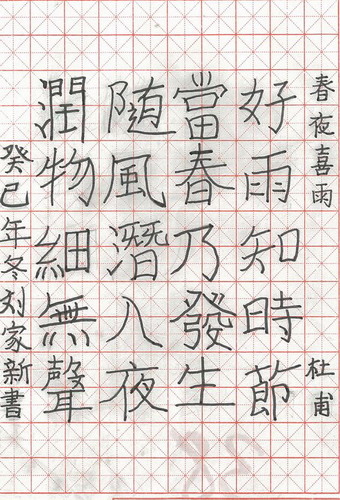 春夜喜雨 杜甫
好雨知時節
當春乃發生
随風潛入夜
潤物細無聲
癸巳年冬刘家新書